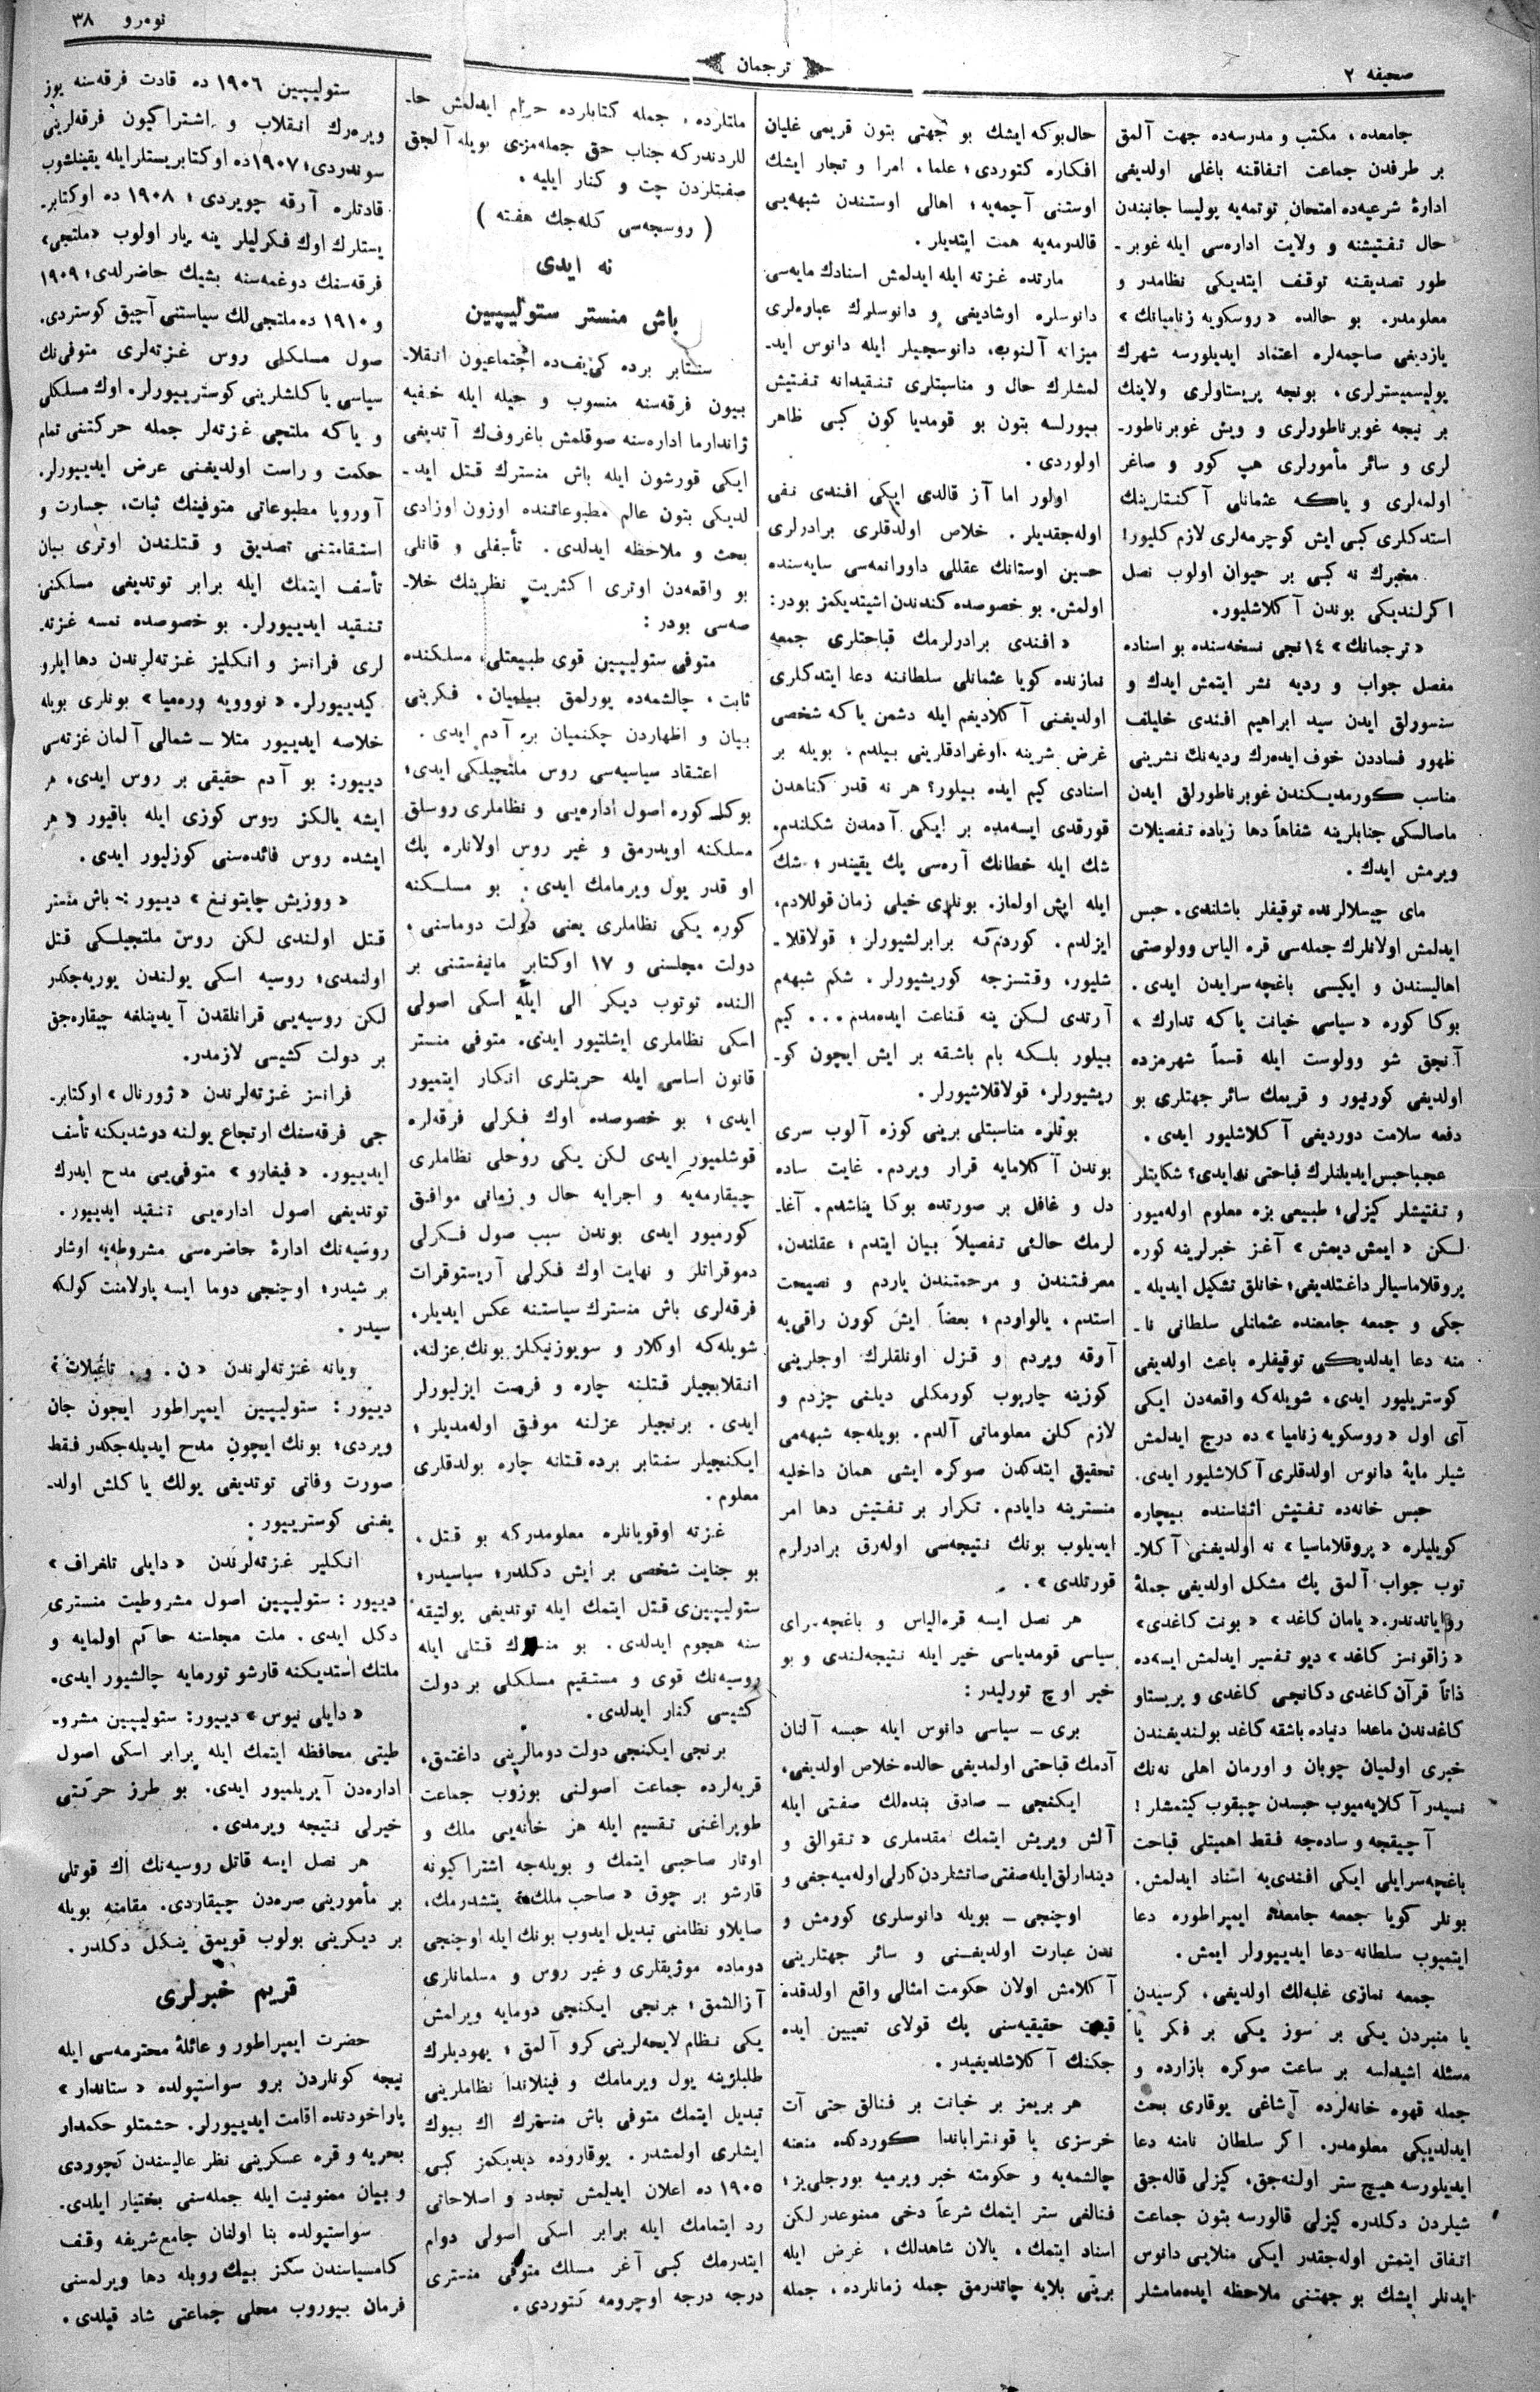 صحیفه ٢
ترجمان
نومرو ٣٨
جامعده، مکتب و مدرسه‌ده جهت آلمق
بر طرفدن جماعت اتفاقنه باغلی اولدیغی
ادارۀ شرعیه‌ده امتحان توتمه‌یه پولیسا جانبندن
حال تفتیشنه و ولایت اداره‌سی ایله غوبر-
طور تصدیقنه توقف ایتدیکی نظامدر و
معلومدر. بو حالده «روسکویه زنامیانك»
یازدیغی صاچمه‌لره اعتماد ایدیلورسه شهرك
پولیسمیسترلری، بونجه پریستاولری ولاینك
بر نیجه غوبرناطورلری و ویش غوبرناطور-
لری و سائر مأمورلری هپ کور و صاغر
اولمه‌لری و یاکه عثمانلی آکنتارینك
استدکلری کبی ایش کوچرمه‌لری لازم کلیور!
مخبرك نه کبی بر حیوان اولوب نصل
اکرلندیکی بوندن آکلاشلیور.
«ترجمانك» ١٤ نجی نسخه‌سنده بو اسناده
مفصل جواب و ردیه نشر ایتمش ایدك و
سنسورلق ایدن سید ابراهیم افندی خلیلف
ظهور فساددن خوف ایده‌رك ردیه‌نك نشرینی
مناسب کورمدیکندن غوبرناطورلق ایدن
ماصالسکی جنابلرینه شفاهاً دها زیاده تفصیلات
ویرمش ایدك.
مای چیسلالرنده توقیفلر باشلندی. حبس
ایدلمش اولانلرك جمله‌سی قره الیاس وولوصتی
اهالیسندن و ایکیسی باغچه سرایدن ایدی.
بوکا کوره «سیاسی خیانت یاکه تدارك»
آنجق شو وولوست ایله قسماً شهرمزده
اولدیغی کورنیور و قریمك سائر جهتلری بو
دفعه سلامت دوردیغی آکلاشلیور ایدی.
عجباحبس‌ایدیلنلرك قباحتی نه‌ایدی؟ شکایتلر
و تفتیشلر کیزلی؛ طبیعی بزه معلوم اوله‌میور
لکن «ایمش دیمش» آغز خبرلرینه کوره
پروقلاماسیالر داغتلدیغی؛ خانلق تشکیل ایدیله-
جکی و جمعه جامعنده عثمانلی سلطانی نا-
منه دعا ایدلدیکی توقیفلره باعث اولدیغی
کوستریلیور ایدی، شویله‌که واقعه‌دن ایکی
آی اول «روسکویه زنامیا» ده درج ایدلمش
شیلر مایۀ دانوس اولدقلری آکلاشلیور ایدی.
حبس خانه‌ده تفتیش اثناسنده بیچاره
کویلیلره «پروقلاماسیا» نه اولدیغنی آکلا-
توب جواب آلمق پك مشکل اولدیغی جملۀ
روایاتدندر. «یامان کاغد» «بونت کاغدی»
«زاقونسز کاغد» دیو تفسیر ایدلمش ایسه‌ده
ذاتاً قرآن کاغدی دکانجی کاغدی و پریستاو
کاغدندن ماعدا دنیاده باشقه کاغد بولندیغندن
خبری اولمیان چوبان و اورمان اهلی نه‌نك
نسیدر آکلایه‌میوب حبسدن چیقوب کیتمشلر!
آچیقجه و ساده‌جه فقط اهمیتلی قباحت
باغچه‌سرایلی ایکی افندی‌یه اسناد ایدلمش.
بونلر کویا جمعه جامعده ایمپراطوره دعا
ایتمیوب سلطانه دعا ایدییوولر ایمش.
جمعه نمازی غلبه‌لك اولدیغی، کرسیدن
یا منبردن یکی بر سوز یکی بر فکر یا
مسئله اشیدلسه بر ساعت صوکره بازارده و
جمله قهوه خانه‌لرده آشاغی یوقاری بحث
ایدلدییکی معلومدر. اکر سلطان نامنه دعا
ایدیلورسه هیچ ستر اولنه‌جق، کیزلی قاله‌جق
شیلردن دکلدره کیزلی قالورسه بتون جماعت
اتفاق ایتمش اوله‌جقدر ایکی منلایی دانوس
ایدنلر ایشك بو جهتنی ملاحظه ایده‌مامشلر
حال‌بوکه ایشك بو جهتی بتون قریمی غلیان
افکاره کتوردی؛ علما، امرا و تجار ایشك
اوستنی آچمه‌یه؛ اهالی اوستندن شبهه‌یی
قالدومه‌یه همت ایتدیلر.
مارتده غزته ایله ایدلمش اسنادك مایه‌سی
دانوسلره اوشادیغی و دانوسلرك عباره‌لری
میزانه آلنوب، دانوسجیلر ایله دانوس اید-
لمشلرك حال و مناسبتلری تنقیدانه تفتیش
بیورلسه بتون بو قومدیا کون کبی ظاهر
اولوردی.
اولور اما آز قالدی ایکی افندی نفی
اوله‌جقدیلر. خلاص اولدقلری برادرلری
حسین اوستانك عقللی داورانمه‌سی سایه‌سنده
اولمش. بو خصوصده کندندن اشیتدیکمز بودر:
«افندی برادرلرمك قباحتلری جمعه
نمازنده کویا عثمانلی سلطاننه دعا ایتدکلری
اولدیغنی آکلادیغم ایله دشمن یاکه شخصی
غرض شرینه اوغرادقلرینی بیلدم. بویله بر
اسنادی کیم ایده بیلور؟ هر نه قدر کناهدن
قورقدی ایسه‌مده بر ایکی آدمدن شکلندم.
شك ایله خطانك آره‌سی پك یقیندر؛ شك
ایله ایش اولماز. بونلری خیلی زمان قوللادم،
ایزلدم. کوردم‌که برابرلشیورلر؛ قولاقلا-
شلیور، وقتسزجه کوریشیورلر. شکم شبهه‌م
آرتدی لکن ینه قناعت ایده‌مدم... کیم
بیلور بلکه بام باشقه بر ایش ایچون کو-
ریشیورلر، قولاقلاشیورلر.
بوتلره مناسبتلی برینی کوزه آلوب سری
بوندن آکلامایه قرار ویردم. غایت ساده
دل و غافل بر صورتده بوکا یناشدم. آغا-
لرمك حالنی تفصیلاً بیان ایتدم؛ عقلندن،
معرفتندن و مرحمتندن یاردم و نصیحت
استدم، یالواردم؛ بعضاً ایش کوون راقی‌یه
آرقه ویردم و قزل اونلقلرك اوجلرینی
کوزینه چارپوب کورمکلی دیلنی چزدم و
لازم کلن معلوماتی آلدم. بویله‌جه شبهه‌می
تحقیق ایتدکدن صوکره ایشی همان داخلیه
منسترینه دایادم. تکرار بر تفتیش دها امر
ایدیلوب بونك نتیجه‌سی اوله‌رق برادرلرم
قورتلدی».
هر نصل ایسه قره‌الیاس و باغچه‌سرای
سیاسی قومدیاسی خیر ایله نتیجه‌لندی و بو
خیر اوچ تورلیدر:
بری — سیاسی دانوس ایله حبسه آلنان
آدمك قباحتی اولمدیغی حالده خلاص اولدیغی،
ایکنجی — صادق بنده‌لك صفتی ایله
آلش ویریش ایتمك مقدملری «تقوالق و
دیندارلق‌ایله‌صفتی‌صاتشلردن‌کارلی‌اوله‌میه‌جغی و
اوچنجی — بویله دانوسلری کوورمش و
ندن عبارت اولدیغنی و سائر جهتلارینی
آکلامش اولان حکومت امثالی واقع اولدقده
قیمت حقیقیه‌سنی پك قولای تعیین ایده
جکنك آکلاشلدیغیدر.
هر بریمز بر خیانت بر فنالق حتی آت
خرسزی یا قونتراباندا کوردکده منعنه
چالشمه‌یه و حکومته خبر ویرمیه بورجلی‌یز؛
فنالغی ستر ایتمك شرعاً دخی ممنوعدر لکن
اسناد ایتمك، یالان شاهدلك، غرض ایله
برینی بلایه چاتدرمق جمله زمانلرده، جمله
ملتلرده، جمله کتابلرده حرام ایدلمش حا-
للردندرکه جناب حق جمله‌مزی بویله آلجق
صفتلردن چت و کنار ایلیه.
(روسجه‌سی کله‌جك هفته)
نه ایدی
باش منستر ستولیپین
سنتابر برده کییف‌ده اجتماعیون انقلا-
بیون فرقه‌سنه منسوب و حیله ایله خفیه
ژاندارما اداره‌سنه صوقلمش باغروف‌ك آتدیغی
ایکی قورشون ایله باش منسترك قتل اید-
لدیکی بتون عالم مطبوعاتنده اوزون اوزادی
بحث و ملاحظه ایدلدی. تأسفلی و قانلی
بو واقعه‌دن اوتری اکثریت نظرینك خلا-
صه‌سی بودر:
متوفی ستولیپین قوی طبیعتلی، مسلکنده
ثابت، چالشمه‌ده یورلمق بیلمیان. فکرینی
بیان و اظهاردن چکنمیان بر آدم ایدی.
اعتقاد سیاسیه‌سی روس ملتچیلکی ایدی؛
بوکا کوره اصول اداره‌یی و نظاملری روسلق
مسلکنه اویدرمق و غیر روس اولانلره پك
او قدر یول ویرمامك ایدی. بو مسلکنه
کوره یکی نظاملری یعنی دولت دوماسنی،
دولت مجلسنی و ١٧ اوکتابر مانیفستنی بر
النده توتوب دیکر الی ایله اسکی اصولی
اسکی نظاملری ایشلتیور ایدی. متوفی منستر
قانون اساسی ایله حریتلری انکار ایتمیور
ایدی؛ بو خصوصده اوك فکرلی فرقه‌لره
قوشلمیور ایدی لکن یکی روحلی نظاملری
چیقارمه‌یه و اجرایه حال و زمانی موافق
کورمیور ایدی بوندن سبب صول فکرلی
دموقراتلر و نهایت اوك فکرلی آریستوقرات
فرقه‌لری باش منسترك سیاستنه عکس ایدیلر،
شویله‌که اوکلار و سویوزنیکلر بونك عزلنه،
انقلابجیلر قتلنه چاره و فرصت ایزلیورلر
ایدی. برنجیلر عزلنه موفق اوله‌مدیلر؛
ایکنجیلر سنتابر برده قتلنه چاره بولدقلری
معلوم.
غزته اوقویانلره معلومدرکه بو قتل،
بو جنایت شخصی بر ایش دکلدر؛ سیاسیدر؛
ستولیپین‌ی قتل ایتمك ایله توتدیغی پولتیقه
سنه هجوم ایدلدی. بو منسترك قتلی ایله
روسیه‌نك قوی و مستقیم مسلکلی بر دولت
کشیسی کنار ایدلدی.
برنجی ایکنجی دولت دومالرینی داغتمق،
قریه‌لرده جماعت اصولنی بوزوب جماعت
طوپراغنی تقسیم ایله هر خانه‌یی ملك و
اوتار صاحبی ایتمك و بویله‌جه اشتراکیونه
قارشو بر چوق «صاحب ملك» یتشدرمك،
صایلاو نظامنی تبدیل ایدوب بونك ایله اوچنجی
دوماده موژیقلری و غیر روس و مسلمانلری
آزالشمق؛ برنجی ایکنجی دومایه ویرامش
یکی نظام لایحه‌لرینی کرو آلمق؛ یهودیلرك
طلبلرینه یول ویرمامك و فینلاندا نظاملرینی
تبدیل ایتمك متوفی باش منسترك اك بیوك
ایشلری اولمشدر. یوقاروده دیدیکمز کبی
١٩٠٥ ده اعلان ایدیلمش تجدد و اصلاحاتی
رد ایتمامك ایله برابر اسکی اصولی دوام
ایتدرمك کبی آغر مسلك متوفی منستری
درجه درجه اوچرومه کتوردی.
ستولیپین ١٩٠٦ ده قادت فرقه‌سنه یوز
ویره‌رك انقلاب و اشتراکیون فرقه‌لرینی
سوندردی؛ ١٩٠٧ ده اوکتابریستلرایله یقینلشوب
قادتلره آرقه چویردی؛ ١٩٠٨ ده اوکتابر-
یستلرك اوك فکرلیلر ینه یار اولوب «ملتجی»
فرقه‌سنك دوغمه‌سنه بشیك حاضرلدی؛ ١٩٠٩
و ١٩١٠ ده ملتجی‌لك سیاستنی آچیق کوستردی.
صول مسلکلی روس غزته‌لری متوفی‌نك
سیاسی یاکلشلرینی کوسترییورلر. اوك مسلکلی
و یاکه ملتجی غزته‌لر جمله حرکتنی تمام
حکمت و راست اولدیغنی عرض ایدییورلر.
آوروپا مطبوعاتی متوفینك ثبات، جسارت و
استقامتنی تصدیق و قتلندن اوتری بیان
تأسف ایتمك ایله برابر توتدیغی مسلکنی
تنقید ایدییورلر. بو خصوصده نمسه غزته-
لری فرانسز و انکلیز غزته‌لرندن دها ایلرو
کیدییورلر. «نوویه وره‌میا» بونلری بویله
خلاصه ایدییور مثلا — شمالی آلمان غزته‌سی
دییور: بو آدم حقیقی بر روس ایدی، هر
ایشه یالکز روس کوزی ایله باقیور و هر
ایشده روس فائده‌سنی کوزلیور ایدی.
«ووزیش چایتونغ» دییور:- باش منستر
قتل اولندی لکن روس ملتجیلکی قتل
اولنمدی؛ روسیه اسکی یولندن یوریه‌جکدر
لکن روسیه‌یی قرانلقدن آیدینلغه چیقاره‌جق
بر دولت کشیسی لازمدر.
فرانسز غزته‌لرندن «ژورنال» اوکتابر-
جی فرقه‌سنك ارتجاع یولنه دوشدیکنه تأسف
ایدییور. «فیغارو» متوفی‌یی مدح ایدرك
توتدیغی اصول اداره‌یی تنقید ایدییور.
روسیه‌نك ادارۀ حاضره‌سی مشروطه‌یه اوشار
بر شیدر؛ اوچنجی دوما ایسه پارلامنت کولکه
سیدر.
ویانه غزته‌لرندن «ن. و. تاغبلات»
دییور: ستولیپین ایمپراطور ایچون جان
ویردی؛ بونك ایچون مدح ایدیله‌جکدر فقط
صورت وفاتی توتدیغی یولك یاکلش اولد-
یغنی کوسترییور.
انکلیز غزته‌لرندن «دایلی تلغراف»
دییور: ستولیپین اصول مشروطیت منستری
دکل ایدی. ملت مجلسنه حاکم اولمایه و
ملتك استدیکنه قارشو تورمایه چالشیور ایدی.
«دایلی نیوس» دییور: ستولیپین مشرو-
طیتی محافظه ایتمك ایله برابر اسکی اصول
اداره‌دن آیریلمیور ایدی. بو طرز حرکتی
خیرلی نتیجه ویرمدی.
هر نصل ایسه قاتل روسیه‌نك اك قوتلی
بر مأمورینی صره‌دن چیقاردی. مقامنه بویله
بر دیکرینی بولوب قویمق ینکل دکلدر.
قریم خبرلری
حضرت ایمپراطور و عائلۀ محترمه‌سی ایله
نیجه کونلردن برو سواستپولده «ستاندار»
پاراخودنده اقامت ایدییورلر. حشمتلو حکمدار
بحریه و قره عسکرینی نظر عالیسندن کچوردی
و بیان ممنونیت ایله جمله‌سنی بختیار ایلدی.
سواستپولده بنا اولنان جامع شریفه وقف
کامسیاسندن سکز بیك روبله دها ویرلمسنی
فرمان بیوروب محلی جماعتی شاد قیلدی.